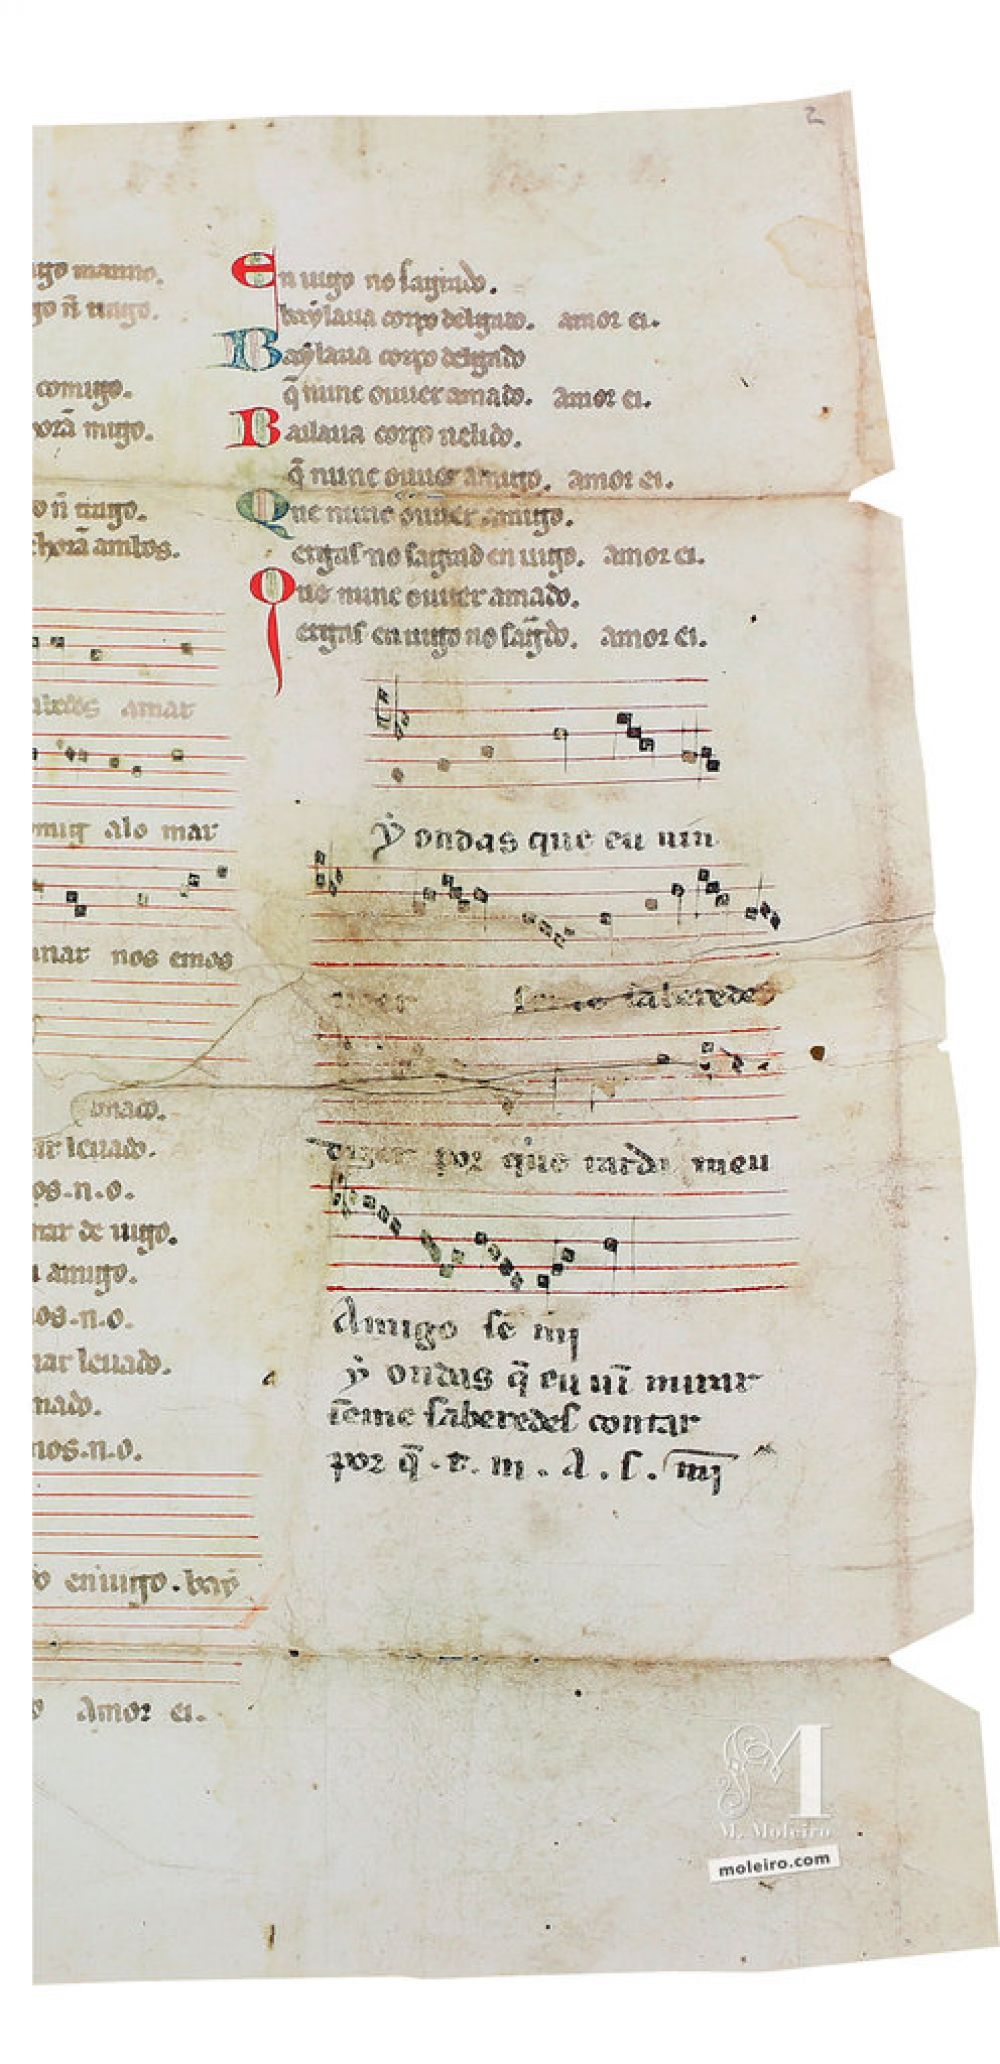 2
ugo manno.
go ñ uugo.
comigo.
uorã migo.
o ñ uugo.
ambos.
amar
comig alo mar
nar nos emos
amado.
ar leuado.
os.n.o.
mar de uigo.
u amigo.
os.n.o.
mar leuado.
mado.
nos.n.o.
o en uigo. bay
Amor ei.
En uigo no sagrado.
baylaua corpo delgado. amor ei.
Baylaua corpo delgado
q̃ nunc ouuer amado. Amor ei.
Bailaua corpo uelido.
q̃ nunc ouuer amigo. amor ei.
Que nunc ouuer amigo.
ergas no sagrad en uigo. amor ei.
Que nunc ouuer amado.
ergas en uigo no sag̃do. amor ei.
Ay ondas que eu uin
ueer se me saberedes
dizer por que tarda meu
Amigo sẽ mj
Ay ondas q̃ eu uĩ mirar
se me saberedes contar
por q̃ . t . m . A . s . mj
M. Moleiro
moleiro.com